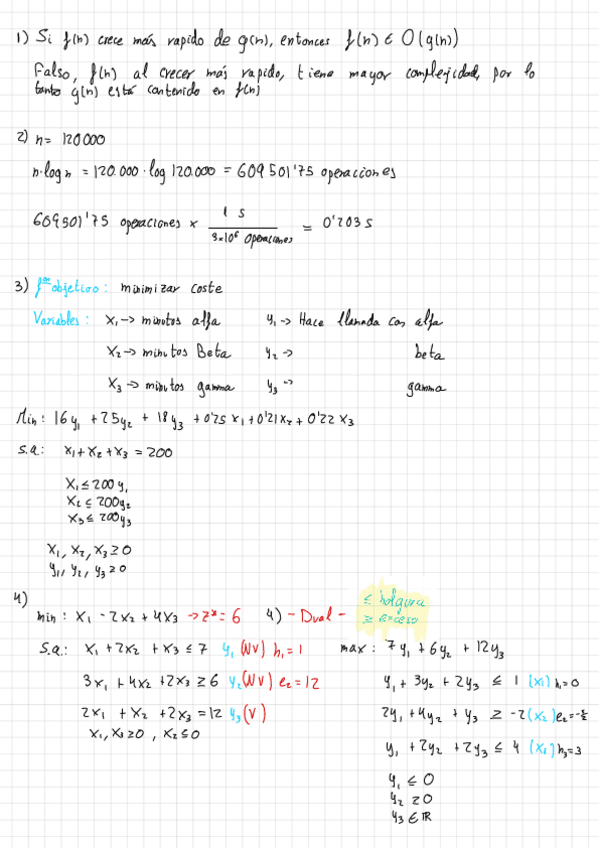 1) Si f(n) crece más rapido de g(n), entonces f(n) ∈ O(g(n))
Falso, f(n) al crecer más rapido, tiene mayor complejidad, por lo
tanto g(n) está contenido en f(n)
2) n = 120000
n·log n = 120.000 · log 120.000 = 609 501'75 operaciones
609501'75 operaciones × 1 s / 3×10⁶ operaciones = 0'203 s
3) fᵒⁿ objetivo: minimizar coste
Variables: x₁ -> minutos alfa y₁ -> Hace llamada con alfa
x₂ -> minutos Beta y₂ -> beta
x₃ -> minutos gamma y₃ -> gamma
Min: 16y₁ + 25y₂ + 18y₃ + 0'25 x₁ + 0'21x₂ + 0'22 x₃
s.a.: x₁ + x₂ + x₃ = 200
x₁ ≤ 200 y₁
x₂ ≤ 200y₂
x₃ ≤ 200y₃
x₁, x₂, x₃ ≥ 0
y₁, y₂, y₃ ≥ 0
4)
min: x₁ - 2x₂ + 4x₃ -> z* = 6
s.a.: x₁ + 2x₂ + x₃ ≤ 7 y₁ (NV) h₁ = 1
3x₁ + 4x₂ + 2x₃ ≥ 6 y₂ (NV) e₂ = 12
2x₁ + x₂ + 2x₃ = 12 y₃ (V)
x₁, x₃ ≥ 0, x₂ ≤ 0
4) - Dual -
≤ holgura
≥ exceso
max: 7y₁ + 6y₂ + 12y₃
y₁ + 3y₂ + 2y₃ ≤ 1 (x₁) h₁ = 0
2y₁ + 4y₂ + y₃ ≥ -2 (x₂)
y₁ + 2y₂ + 2y₃ ≤ 4 h₃ = 3
y₁ ≤ 0
y₂ ≥ 0
y₃ ∈ ℝ